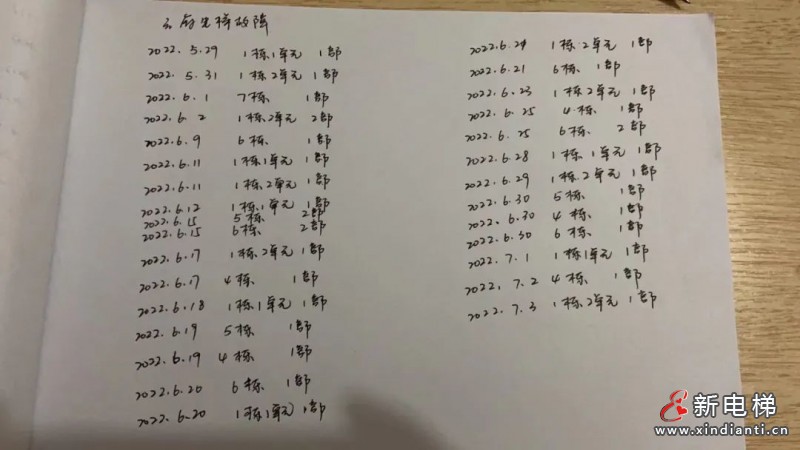 府电梯故障
2022.5.29 1栋1单元 1部
2022.5.31 1栋2单元 1部
2022.6.1 7栋 1部
2022.6.2 1栋2单元 2部
2022.6.9 6栋 1部
2022.6.11 1栋1单元 1部
2022.6.11 1栋2单元 1部
2022.6.12 1栋1单元 1部
2022.6.15 5栋 2部
2022.6.15 6栋 2部
2022.6.17 1栋2单元 1部
2022.6.17 4栋 1部
2022.6.18 1栋1单元 1部
2022.6.19 5栋 1部
2022.6.19 4栋 1部
2022.6.20 6栋 1部
2022.6.20 1栋1单元 1部
2022.6.21 1栋2单元 1部
2022.6.21 6栋 1部
2022.6.23 1栋2单元 1部
2022.6.25 4栋 1部
2022.6.25 6栋 2部
2022.6.28 1栋1单元 1部
2022.6.29 1栋2单元 1部
2022.6.30 5栋 1部
2022.6.30 4栋 1部
2022.6.30 6栋 1部
2022.7.1 1栋1单元 1部
2022.7.2 4栋 1部
2022.7.3 1栋2单元 1部
新电梯
www.xindianti.cn